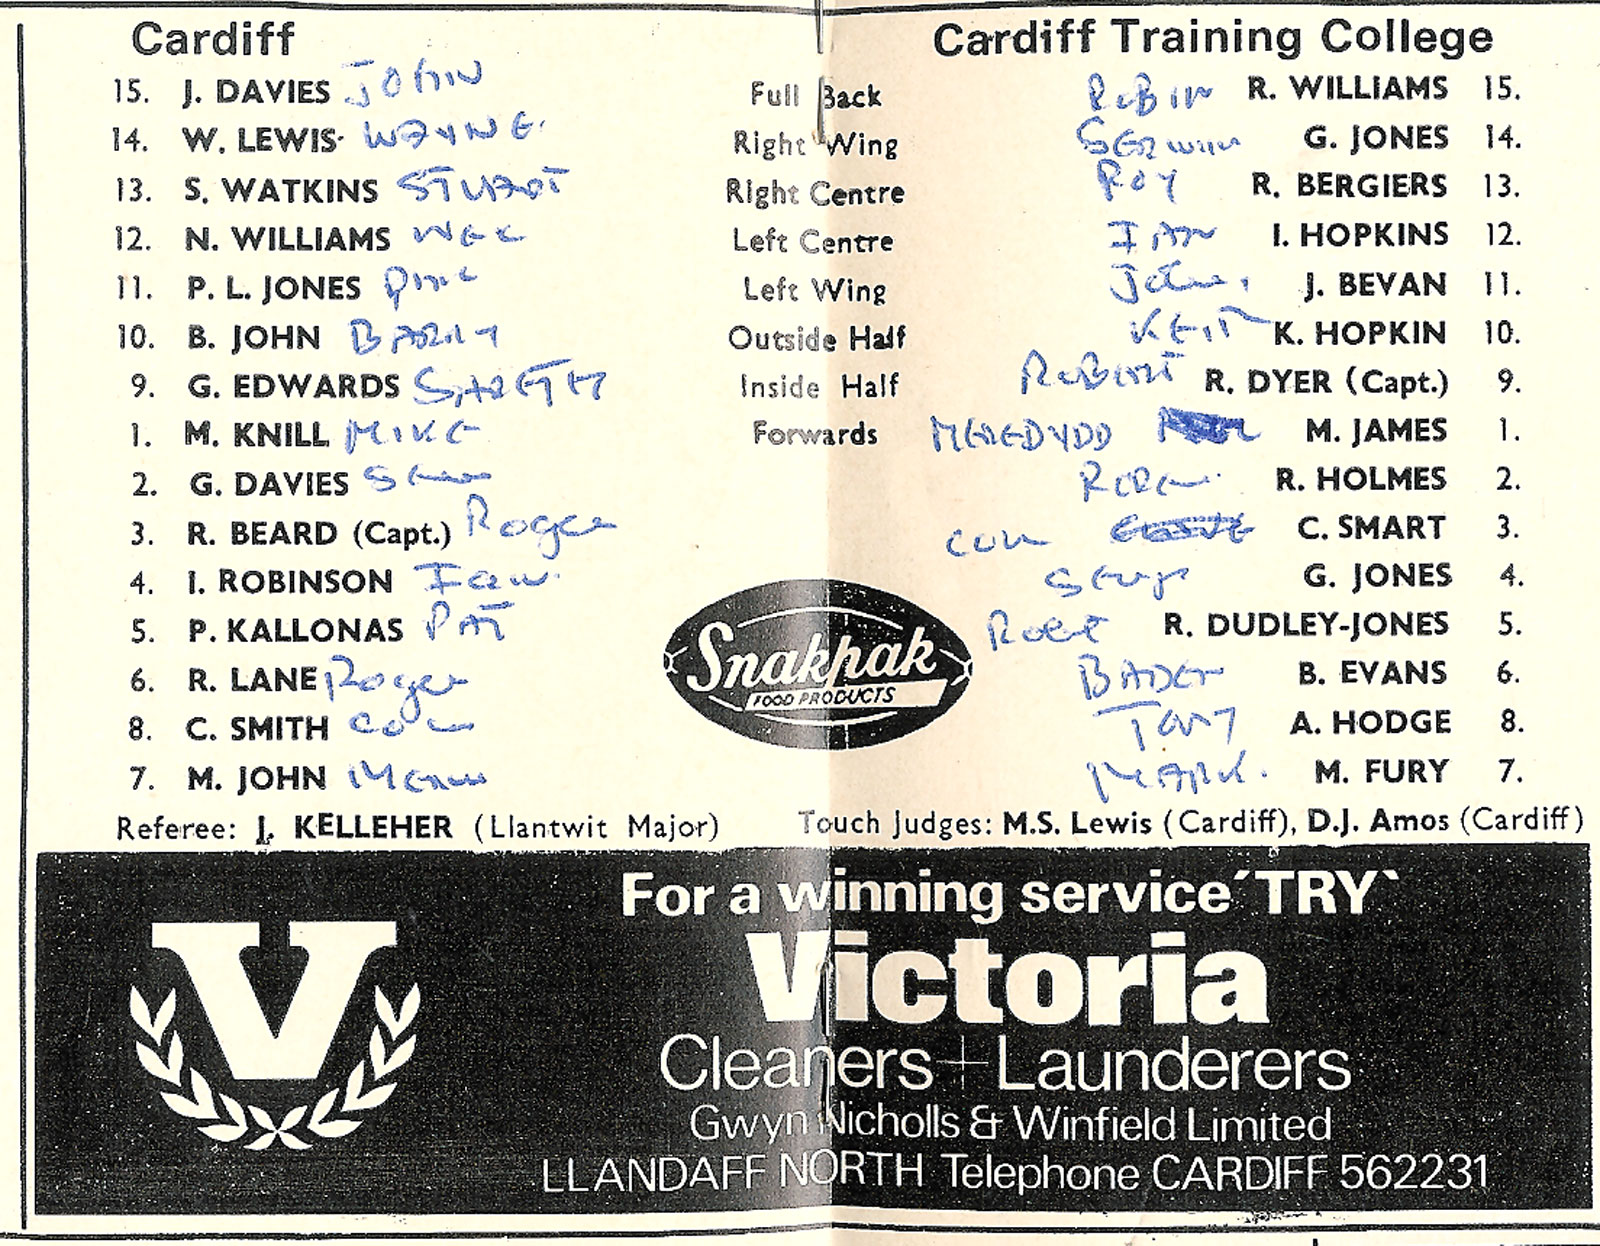 Cardiff Cardiff Training College
15. J. DAVIES JOHN Full Back ROBIN R. WILLIAMS 15.
14. W. LEWIS WAYNE Right Wing GERWYN G. JONES 14.
13. S. WATKINS STUART Right Centre ROY R. BERGIERS 13.
12. N. WILLIAMS Left Centre IAN I. HOPKINS 12.
11. P. L. JONES Left Wing John J. BEVAN 11.
10. B. JOHN BARRY Outside Half KEITH K. HOPKIN 10.
9. G. EDWARDS GARETH Inside Half ROBERT R. DYER (Capt.) 9.
1. M. KNILL MIKE Forwards MEREDYDD M. JAMES 1.
2. G. DAVIES R. HOLMES 2.
3. R. BEARD (Capt.) Roger C. SMART 3.
4. I. ROBINSON Ian G. JONES 4.
5. P. KALLONAS PAT R. DUDLEY-JONES 5.
6. R. LANE Roger BADEN B. EVANS 6.
8. C. SMITH TONY A. HODGE 8.
7. M. JOHN MARK M. FURY 7.
Snakpak
FOOD PRODUCTS
Referee: J. KELLEHER (Llantwit Major) Touch Judges: M.S. Lewis (Cardiff), D.J. Amos (Cardiff)
For a winning service ´TRY`
V
Victoria
Cleaners + Launderers
Gwyn Nicholls & Winfield Limited
LLANDAFF NORTH Telephone CARDIFF 562231